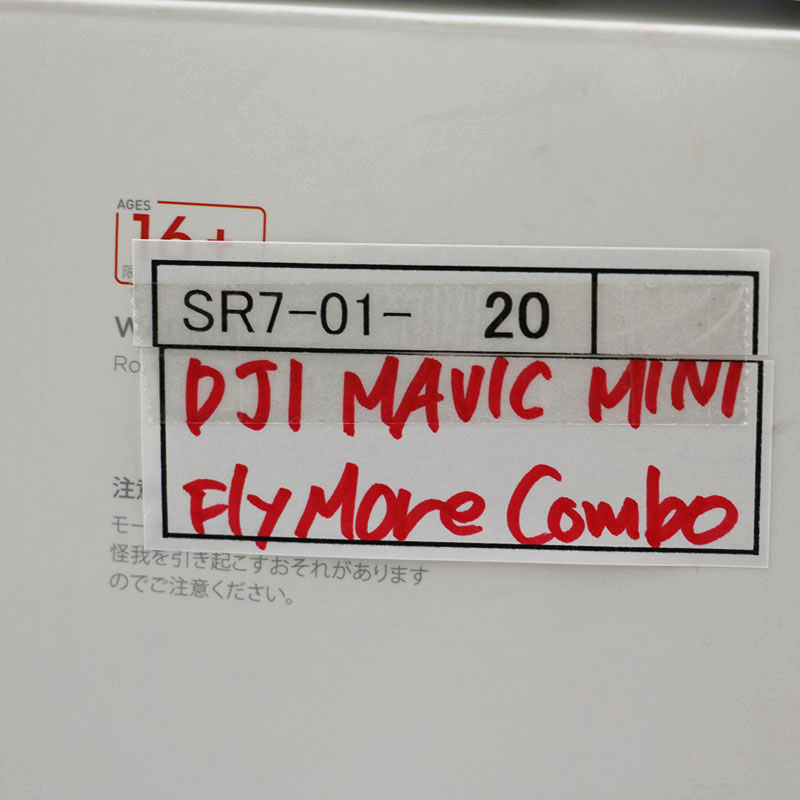 AGES
16+
SR7-01- 20
DJI MAVIC MINI
Fly More Combo
注意
モー
怪我を引き起こすおそれがあります
のでご注意ください。